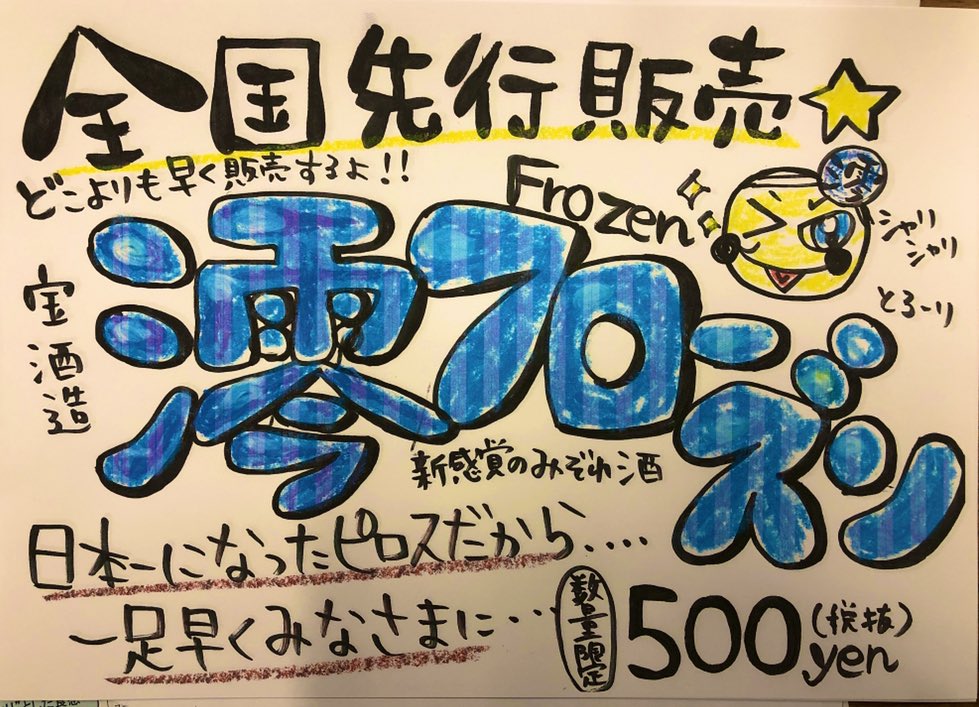 全国先行販売
どこよりも早く販売するよ!!
Frozen
シャリ
シャリ
とろーり
宝酒造
澪フローズン
新感覚のみぞれ酒
日本一になったピロスだから....
一足早くみなさまに...
数量限定
500yen
(税抜)